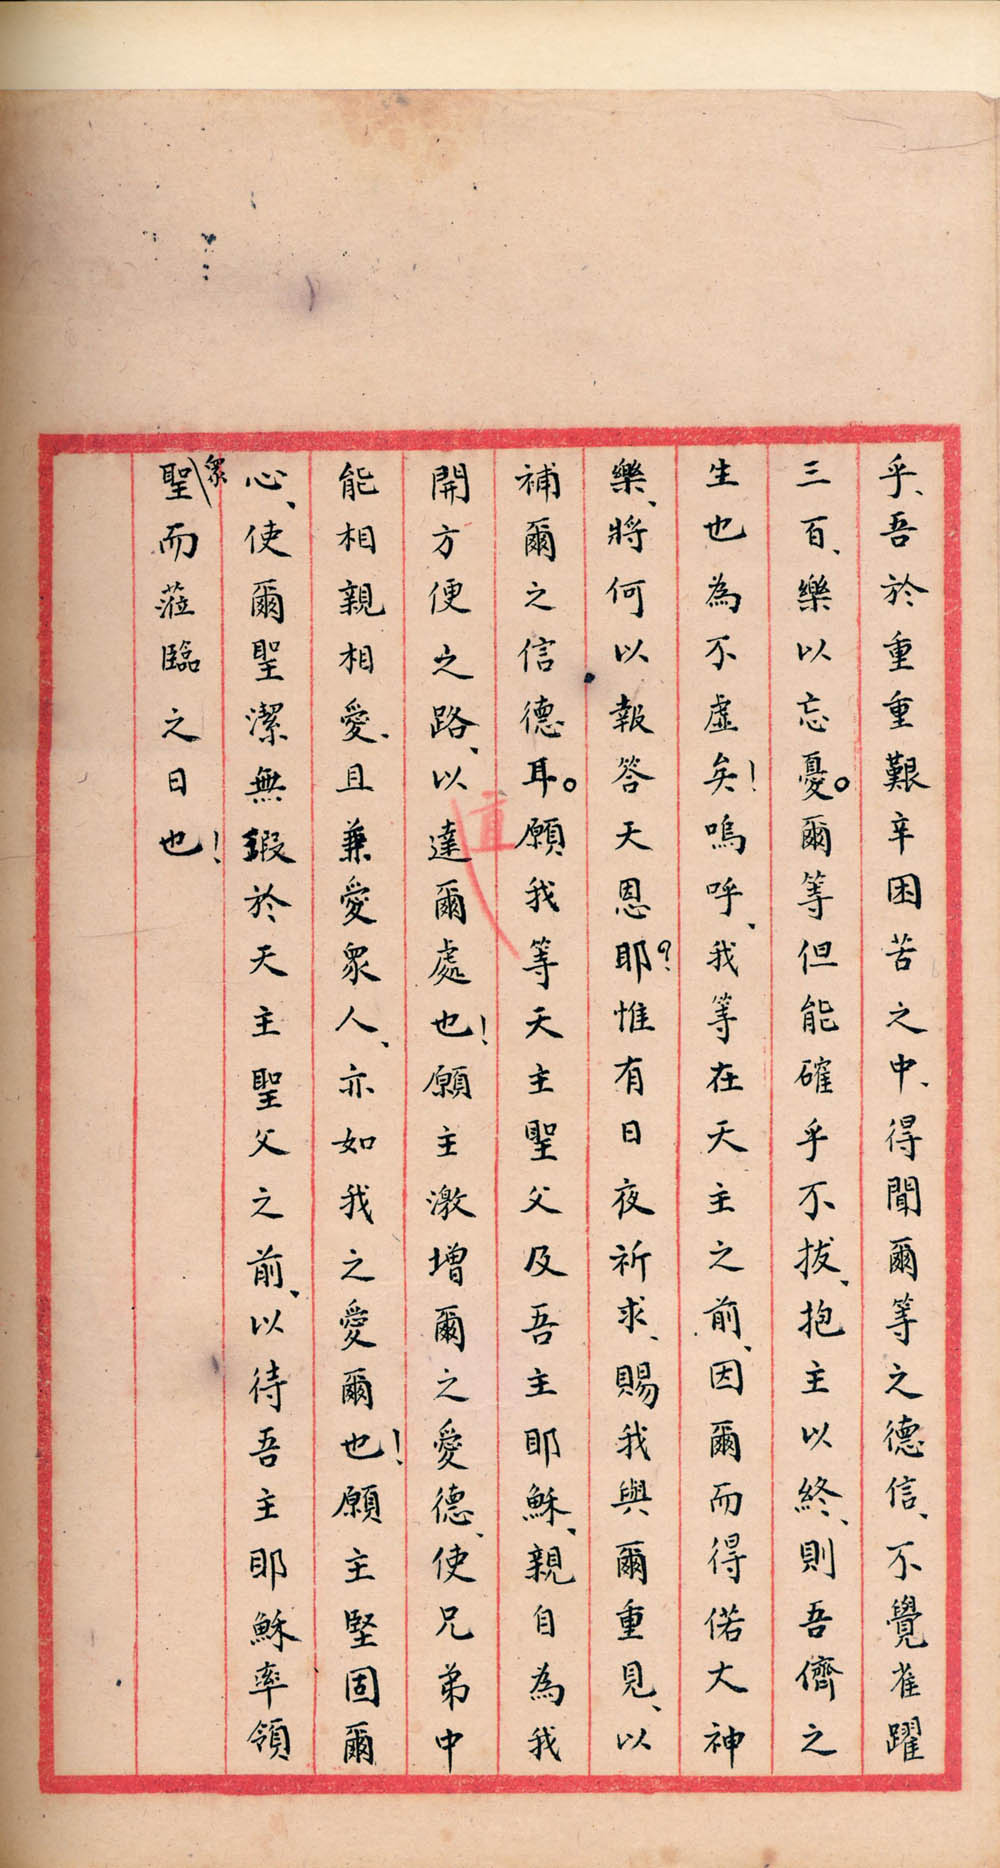 乎、吾於重重艱辛困苦之中、得聞爾等之德信、不覺雀躍
三百、樂以忘憂。爾等但能確乎不拔、抱主以終、則吾儕之
生也為不虛矣！嗚呼、我等在天主之前、因爾而得偌大神
樂、將何以報答天恩耶？惟有日夜祈求、賜我與爾重見、以
補爾之信德耳。願我等天主聖父及吾主耶穌、親自為我
開方便之路、以直達爾處也！願主激增爾之愛德、使兄弟中
能相親相愛、且兼愛眾人、亦如我之愛爾也！願主堅固爾
心、使爾聖潔無瑕於天主聖父之前、以待吾主耶穌率領
眾聖而蒞臨之日也！